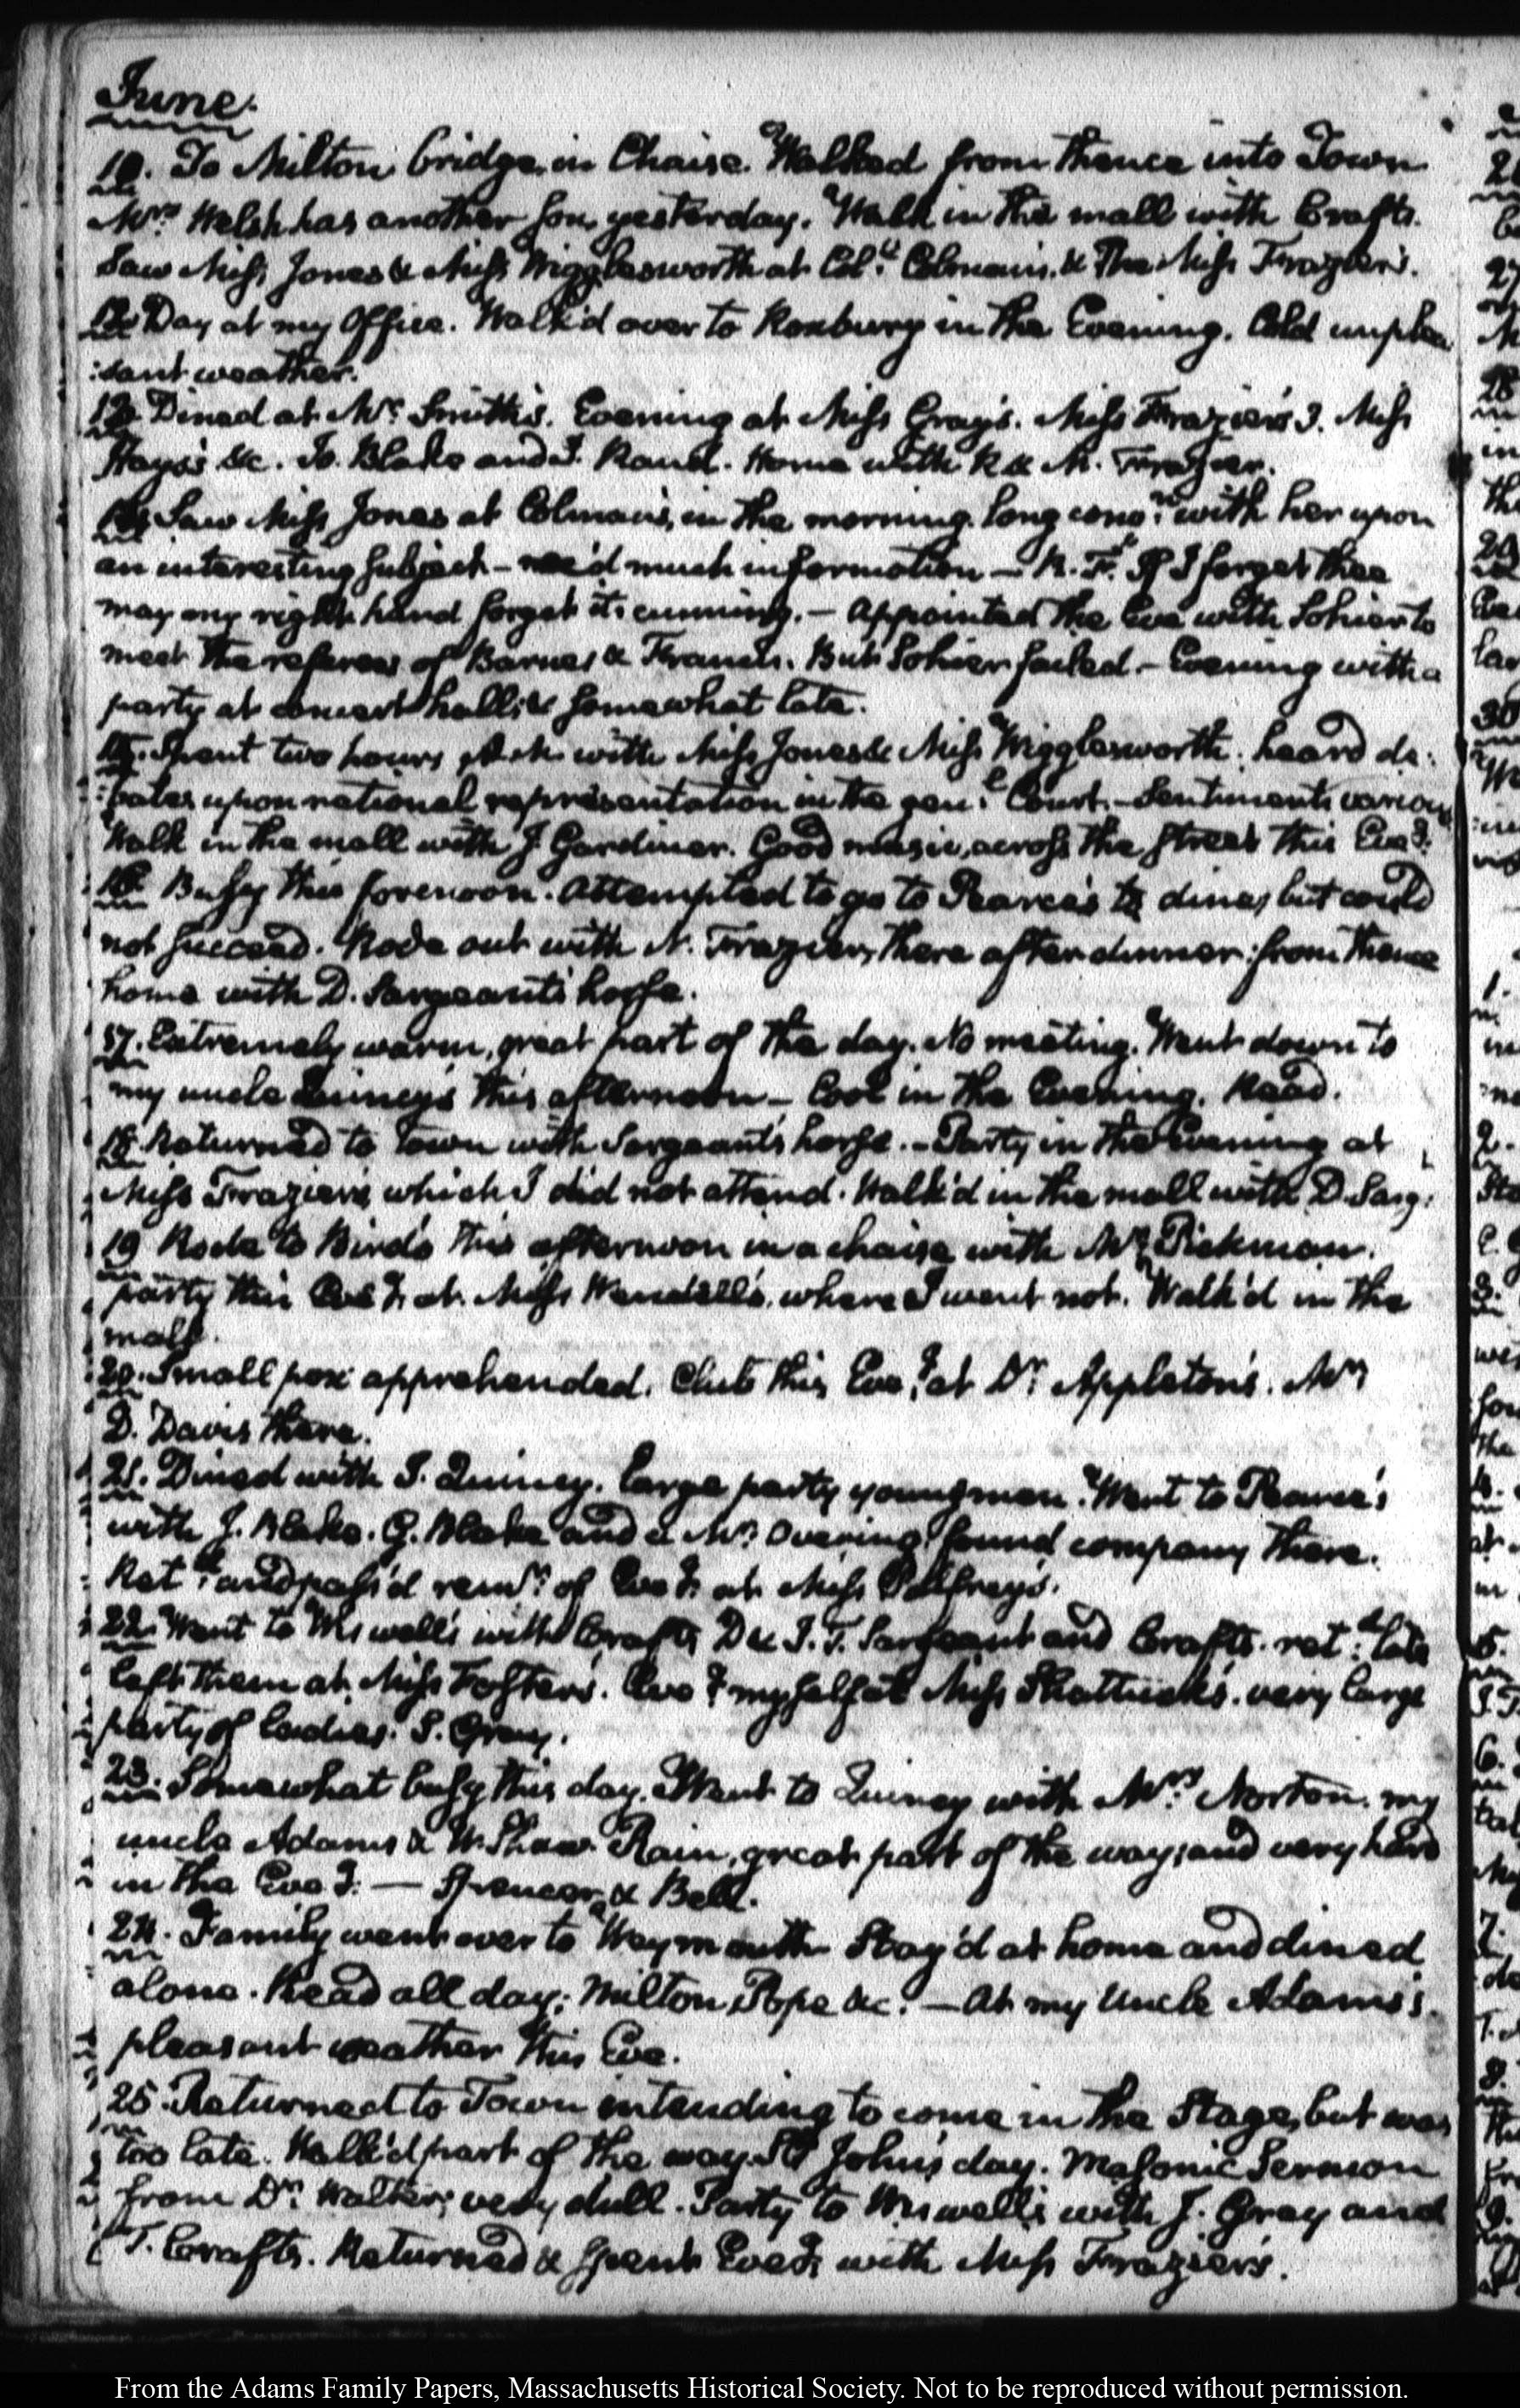 June.
To Milton bridge in Chaise. Walked from thence into Town
Mrs. Welsh has another Son, yesterday. Walk in the mall with Crafts.
Saw Miss Jones & Miss Wigglesworth at Coll. Colman's. & The Miss Frazier's.
Day at my Office. Walk'd over to Roxbury in the Evening. Cold unplea
:sant weather.
Dined at Mr. Smith's. Evening at Miss Gray's. Miss Frazier's. Miss
Hays's &c. Jo. Blake and I. Rand. Home with R & M. Frazier.
Saw Miss Jones at Colman's, in the morning. long conv.n with her upon
an interesting Subject — rec'd much information — M. F. If I forget thee
may my right hand forget its cunning. — Appointed the Eve with Sohier to
meet the referees of Barnes & Francis. But Sohier failed. — Evening with a
party at concert hall: & somewhat late.
15. Spent two hours A.M. with Miss Jones & Miss Wigglesworth. heard de:
:bates upon national representation in the gen:l Court. — Sentiments various
Walk in the mall with J. Gardiner. Good music, across the street this Eve.g
16. Busy this forenoon. Attempted to go to Pearce's to dine, but could
not succeed. Rode out with N. Frazier, there after dinner: from thence
home with D. Sargeant's horse.
17. Extremely warm, great part of the day. No meeting. Went down to
my uncle Quincy's this afternoon — Cool in the Evening. Read.
18. Returned to town with Sargeant's horse. — Party in the Evening at
Miss Frazier's, which I did not attend. Walk'd in the mall with D. Sarg:
19 Rode to Bird's this afternoon in a chaise with Mr. Pickman.
party this Eve.g at Miss Wendell's. where I went not. Walk'd in the
mall.
20. Small pox apprehended. Club this Eve.g at Dr. Appleton's. Mr.
D. Davis there.
21. Dined with J. Quincy. Large party young men. Went to Pearce's
with J. Blake. G. Blake and a Mr. Overing found company there.
Ret.d and pass'd rem.r of Eve.g at Miss Palfrey's.
22. Went to Wiswell's with Crafts, D & J. T. Sargeant and Crafts. ret.d late
left them at Miss Foster's. Eve.g myself at Miss Shattuck's. very large
party of Ladies. S. Gray.
23. Somewhat busy this day. Went to Quincy with Mrs. Norton. my
uncle Adams & W. Shaw. Rain, great part of the way; and very hard
in the Eve.g — Spencer, & Bell.
24. Family went over to Weymouth. Stay'd at home and dined
alone. Read all day; Milton, Pope &c. — At my Uncle Adams's.
pleasant weather this Eve.
25. Returned to Town intending to come in the Stage, but was
too late. Walk'd part of the way. St. John's day. Masonic Sermon
from Dr. Walter; very dull. Party to Wiswell's with J. Gray and
T. Crafts. Returned & Spent Eve.g with Miss Frazier's.
From the Adams Family Papers, Massachusetts Historical Society. Not to be reproduced without permission.